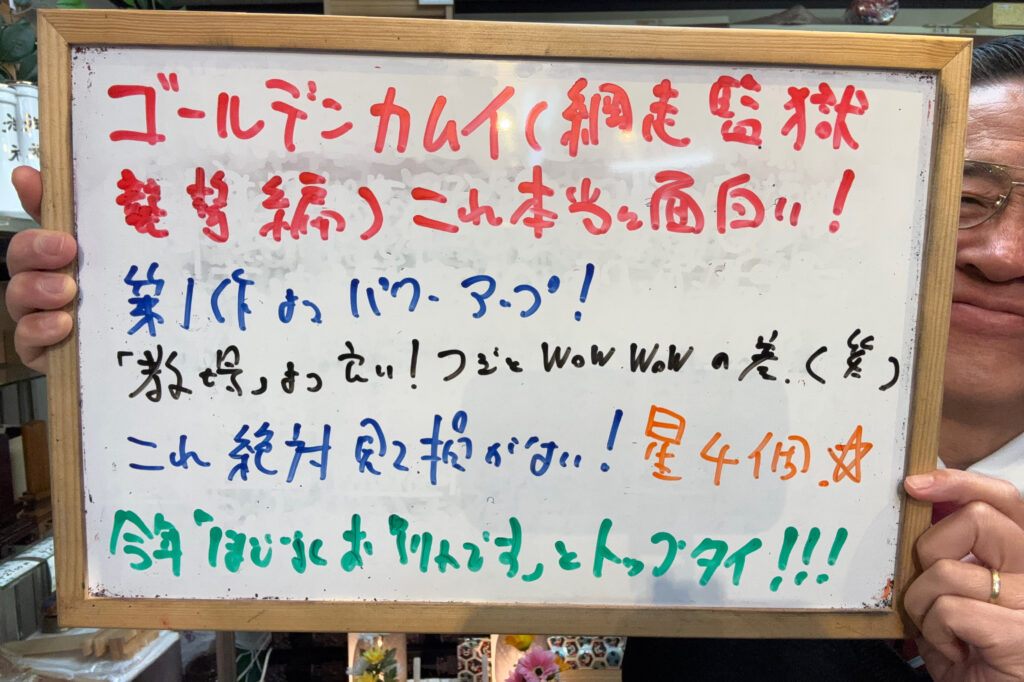 ゴールデンカムイ(網走監獄
襲撃編)これ本当に面白い!
第1作よりパワーアップ!
「教場」より良い!フジとWOWWOWの差.(笑)
これ絶対見て損がない!星4個.☆
今年「 」とトップタイ!!!